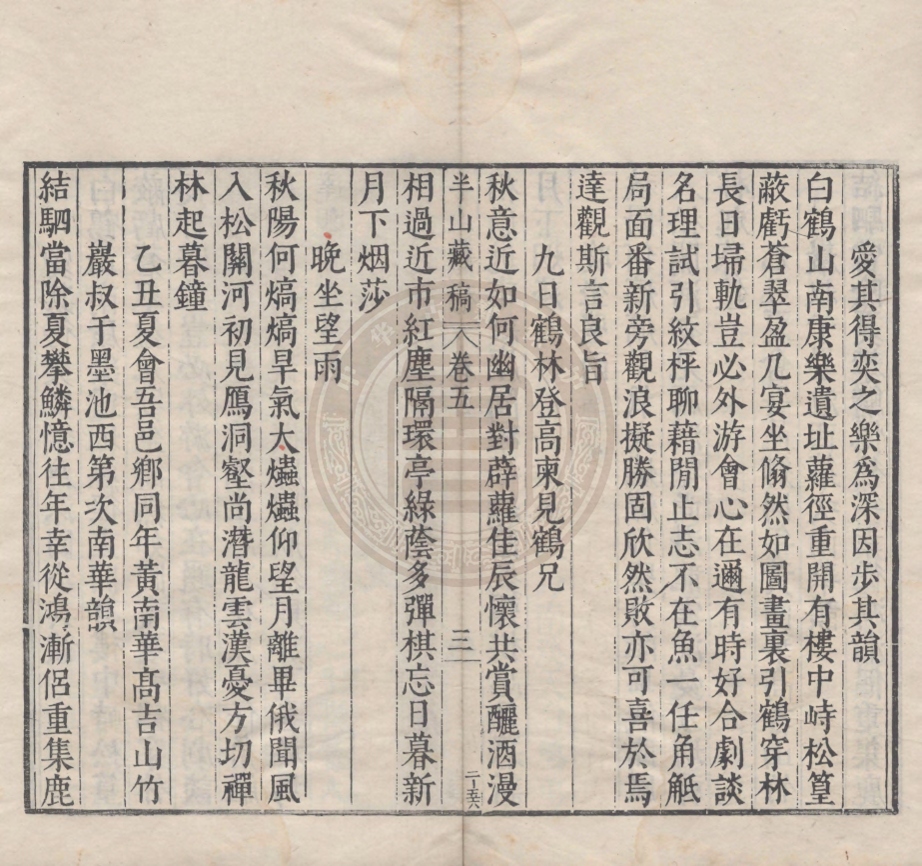 愛其得奕之樂爲深因步其韻
白鶴山南康樂遺址蘿徑重開有樓中峙松篁
蔽虧蒼翠盈几宴坐翛然如圖畫裏引鶴穿林
長日埽軌豈必外游會心在邇有時好合劇談
名理試引紋枰聊藉閒止志不在魚一任角觝
局面番新旁觀浪擬勝固欣然敗亦可喜於焉
達觀斯言良旨
九日鶴林登高柬見鶴兄
秋意近如何幽居對薜蘿佳辰懷共賞釃酒漫
半山藏稿
卷五
三
二-五六
相過近市紅塵隔環亭綠蔭多彈棋忘日暮新
月下烟莎
晚坐望雨
秋陽何熇熇旱氣大蟲蟲仰望月離畢俄聞風
入松關河初見鴈洞壑尚潛龍雲漢憂方切禪
林起暮鐘
乙丑夏會吾邑鄉同年黃南華高吉山竹
巖叔于墨池西第次南華韻
結駟當除夏攀鱗憶往年幸從鴻漸侶重集鹿